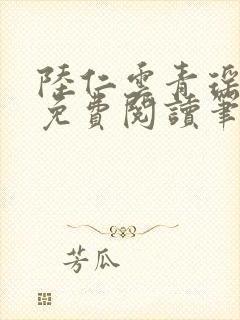 陸仁雲青瑶
免費閱讀筆
芳瓜